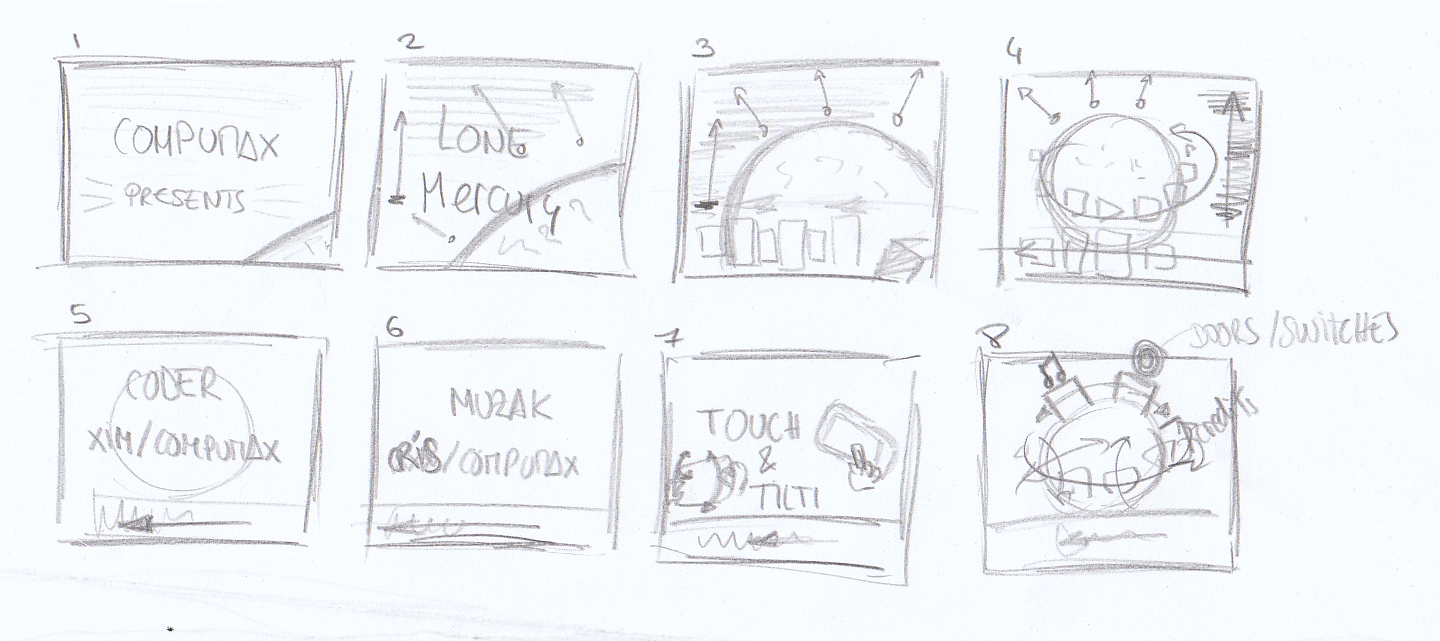 1
COMPUMAX
PRESENTS
2
LONE
Mercury
3
4
5
CODER
XIM/COMPUMAX
6
MUZAK
CRIS/COMPUMAX
7
TOUCH
&
TILT!
8
DOORS/SWITCHES
Credits